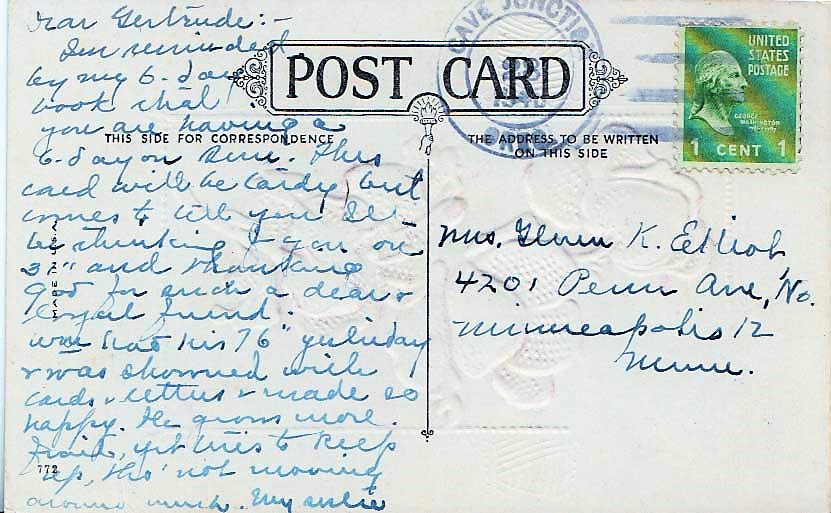 Dear Gertrude:-
Im reminded
by my B-day
book that
you are having a
B-day on Sun. This
card will be tardy, but
comes to tell you I'll
be thinking of you on
3" and thanking
God for such a dear &
loyal friend.
Will had his 76" yesterday
& was showered with
cards & letters & made so
happy. He grows more
frail, yet tries to keep
up, tho' not moving
around much. My
POST CARD
THIS SIDE FOR CORRESPONDENCE
THE ADDRESS TO BE WRITTEN
ON THIS SIDE
MADE IN U.S.A.
772
CAVE JUNCTION
UNITED
STATES
POSTAGE
GEORGE
WASHINGTON
1 CENT 1
Mrs. Glenn K. Elliot
4201 Penn Ave, No.
Minneapolis 12
Minn.